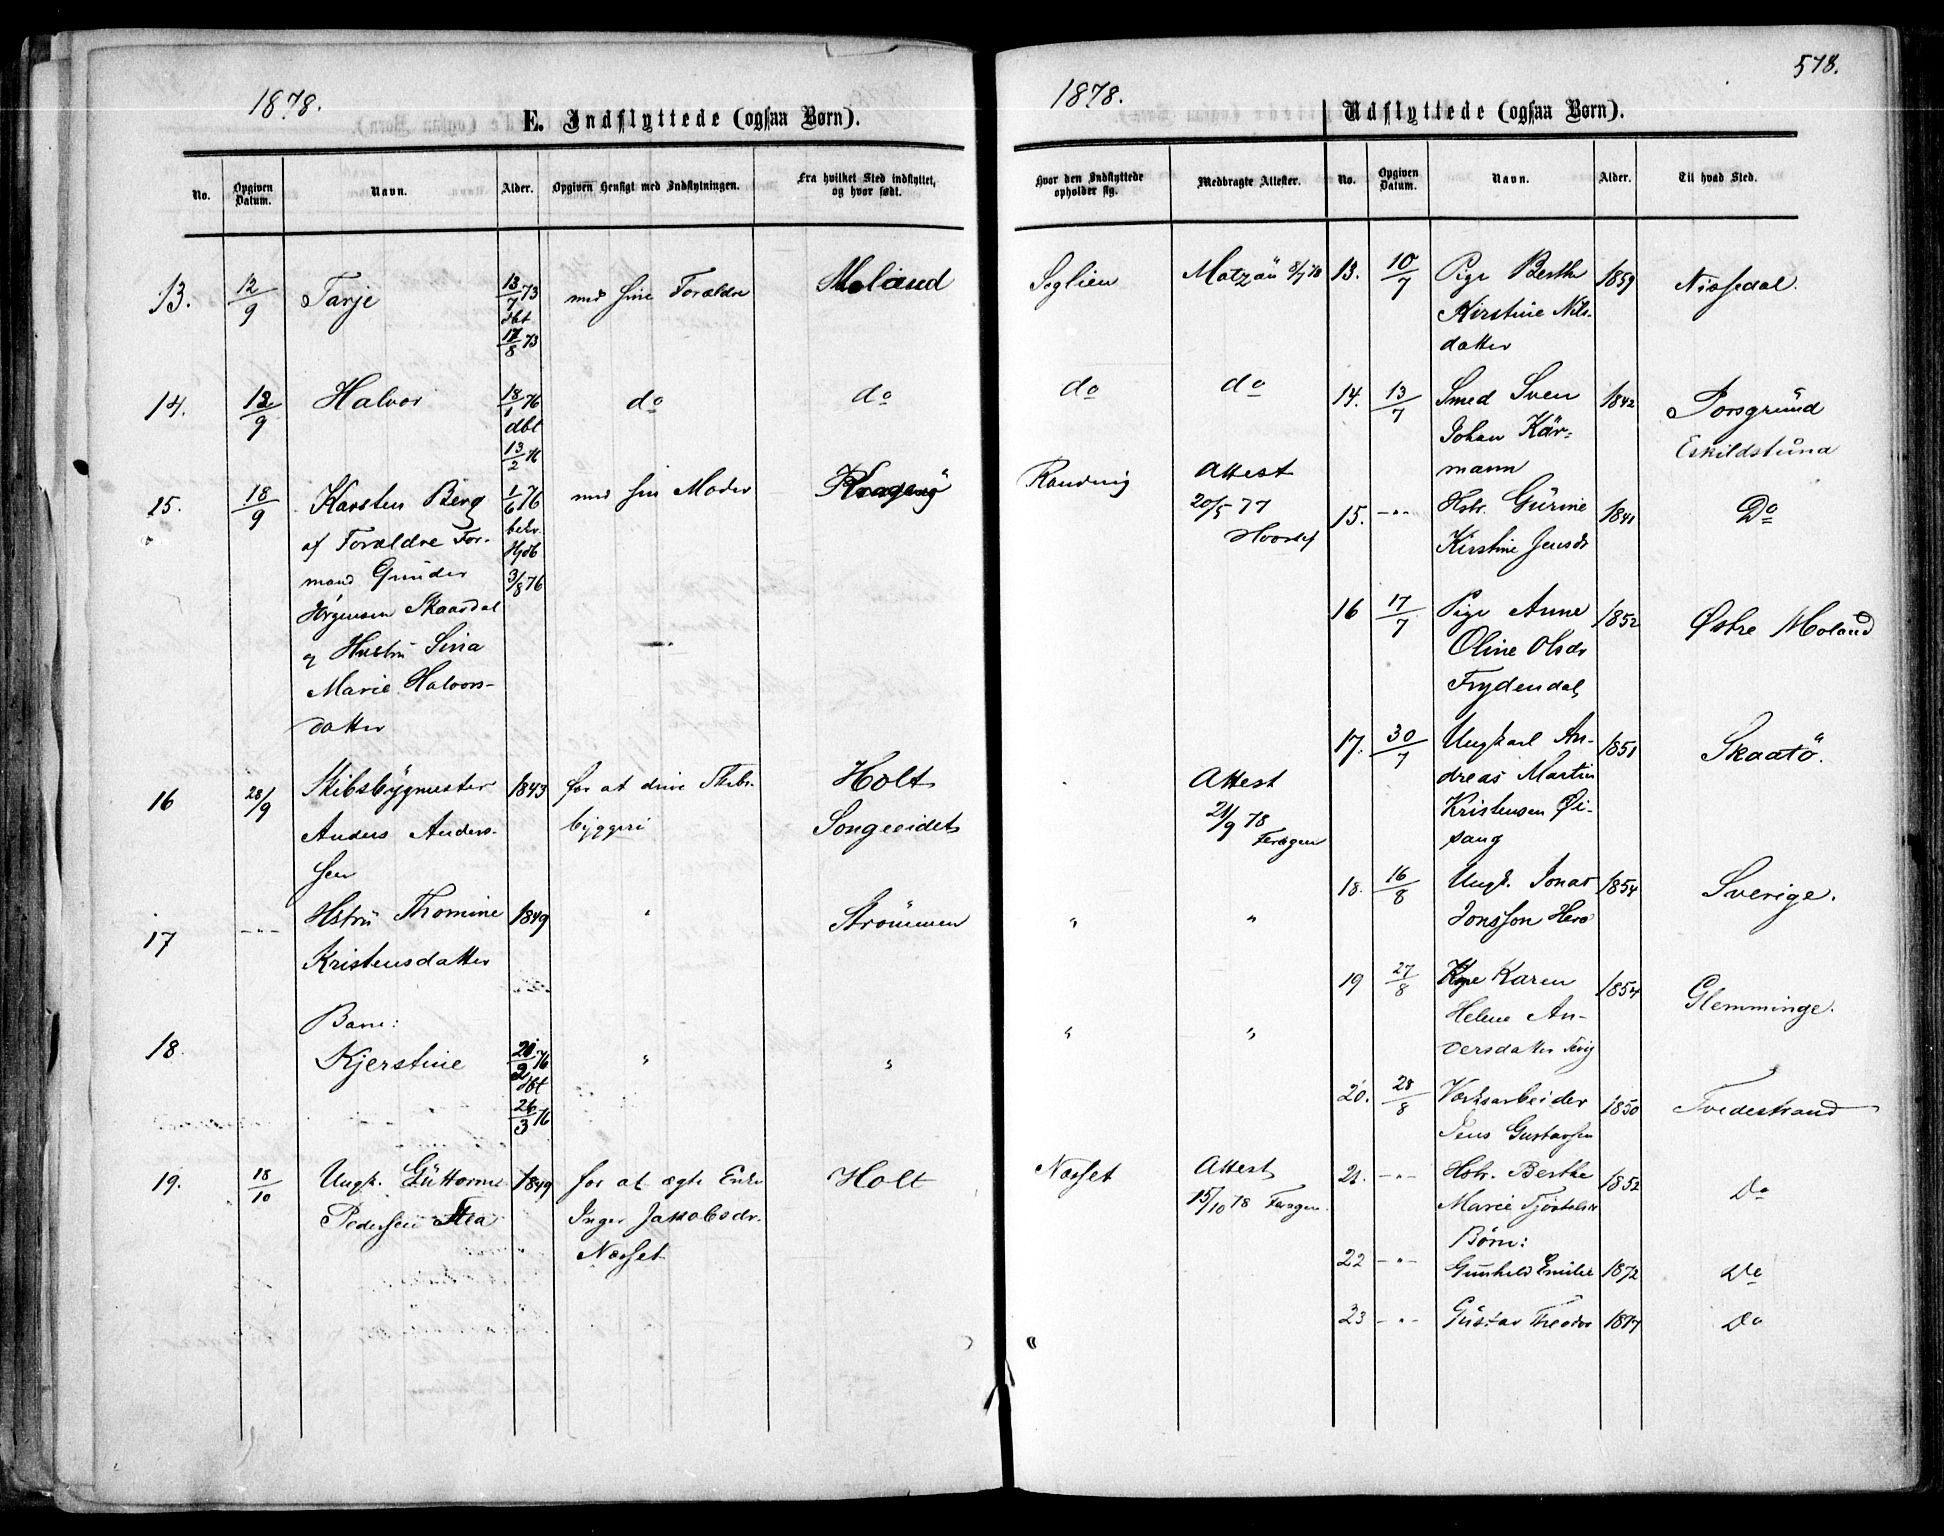 578.
1878.
E. Indflyttede (ogsaa Børn).
No.
Opgiven Datum.
Navn.
Alder.
Opgiven Hensigt med Indflytningen.
Fra hvilket Sted indflyttet, og hvor født.
13. 12/9 Tarje 13/7 73 med sine Forældre Moland
dbt
17/8 73
14. 12/9 Halvor 18/1 76 do do
dbt
13/2 76
15. 18/9 Karsten Berg 1/6 76 med sin Moder Kragerø
af Forældre For- bekr.
mand Gunder Hjdb
Jørgensen Skaardal 3/8 76
og Hustru Sina
Marie Halvors-
datter
16 28/9 Skibsbygmester 1843 for at drive Skibs- Holt
Anders Anders- byggeri Songeeidet
sen
17 -"- Hstru Thomine 1849 " Strømmen
Kristensdatter
Barn:
18. Kjerstine 20/2 76 " "
dbt
26/3 76
19. 18/10 Ungk. Guttorm 1849 for at ægte Enke Holt
Pedersen Inger Jakobsdr.
Næsset
1878.
Udflyttede (ogsaa Børn).
Hvor den Indflyttede opholder sig.
Medbragte Attester.
No.
Opgiven Datum.
Navn.
Alder.
Til hvad Sted.
Seglien Matzau 8/7 78 13. 10/7 Pige Berthe 1859 Nissedal.
Kirstine Nils-
datter
do do 14. 13/7 Smed Sven 1842 Porsgrund
Johan Kär- Eskildstuna
mann
Randvig Attest
20/5 77
15. -"- Hstr. Gurine 1841 Do
Kirstine Jensdr
16 17/7 Pige Anne 1852 Østre Moland
Oline Olsdr
Frydendal
17. 30/7 Ungkarl An- 1851 Skaatö.
Attest dreas Martin
21/9 78 Kristensen Øi-
sang
18. 16/8 Ungk. Jonas 1854 Sverige.
" " Jonsson
19 27/8 Karen 1854 Glemminge.
Helene An-
" " dersdatter
20. 28/8 Værksarbeider 1850 Tvedestrand
Jens Gustavsen
Næsset Attest 21. -"- Hstr. Berthe 1852 Do
15/10 78 Marie
Børn:
22 -"- Gunhild Emilie 1872 Do
23 -"- Gustav Theodor 1877 Do